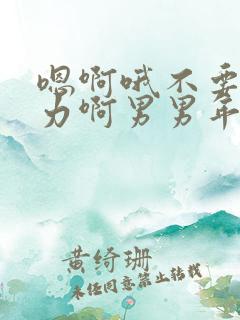 嗯啊哦不要
力啊男男年
黄绮珊
未经同意禁止转载